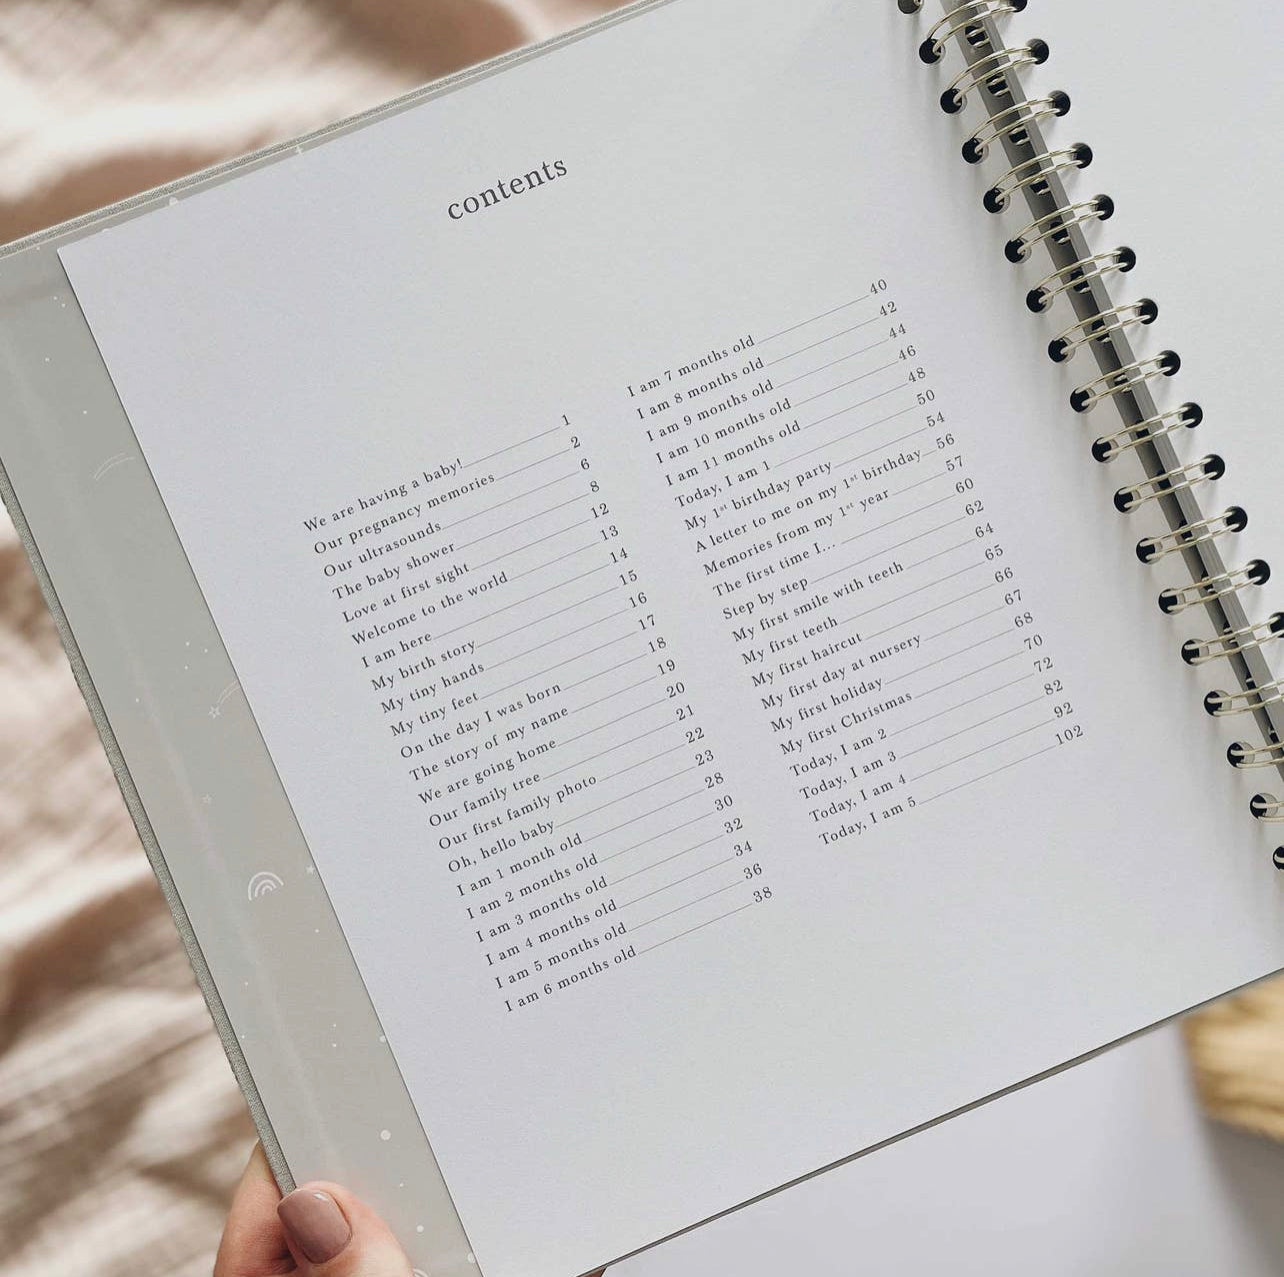 contents
We are having a baby! 1
Our pregnancy memories 2
Our ultrasounds 6
The baby shower 8
Love at first sight 12
Welcome to the world 13
I am here 14
My birth story 15
My tiny hands 16
My tiny feet 17
On the day I was born 18
The story of my name 19
We are going home 20
Our family tree 21
Our first family photo 22
Oh, hello baby 23
I am 1 month old 28
I am 2 months old 30
I am 3 months old 32
I am 4 months old 34
I am 5 months old 36
I am 6 months old 38
I am 7 months old 40
I am 8 months old 42
I am 9 months old 44
I am 10 months old 46
I am 11 months old 48
Today, I am 1 50
My 1st birthday party 54
A letter to me on my 1st birthday 56
Memories from my 1st year 57
The first time I... 60
Step by step 62
My first smile with teeth 64
My first teeth 65
My first haircut 66
My first day at nursery 67
My first holiday 68
My first Christmas 70
Today, I am 2 72
Today, I am 3 82
Today, I am 4 92
Today, I am 5 102